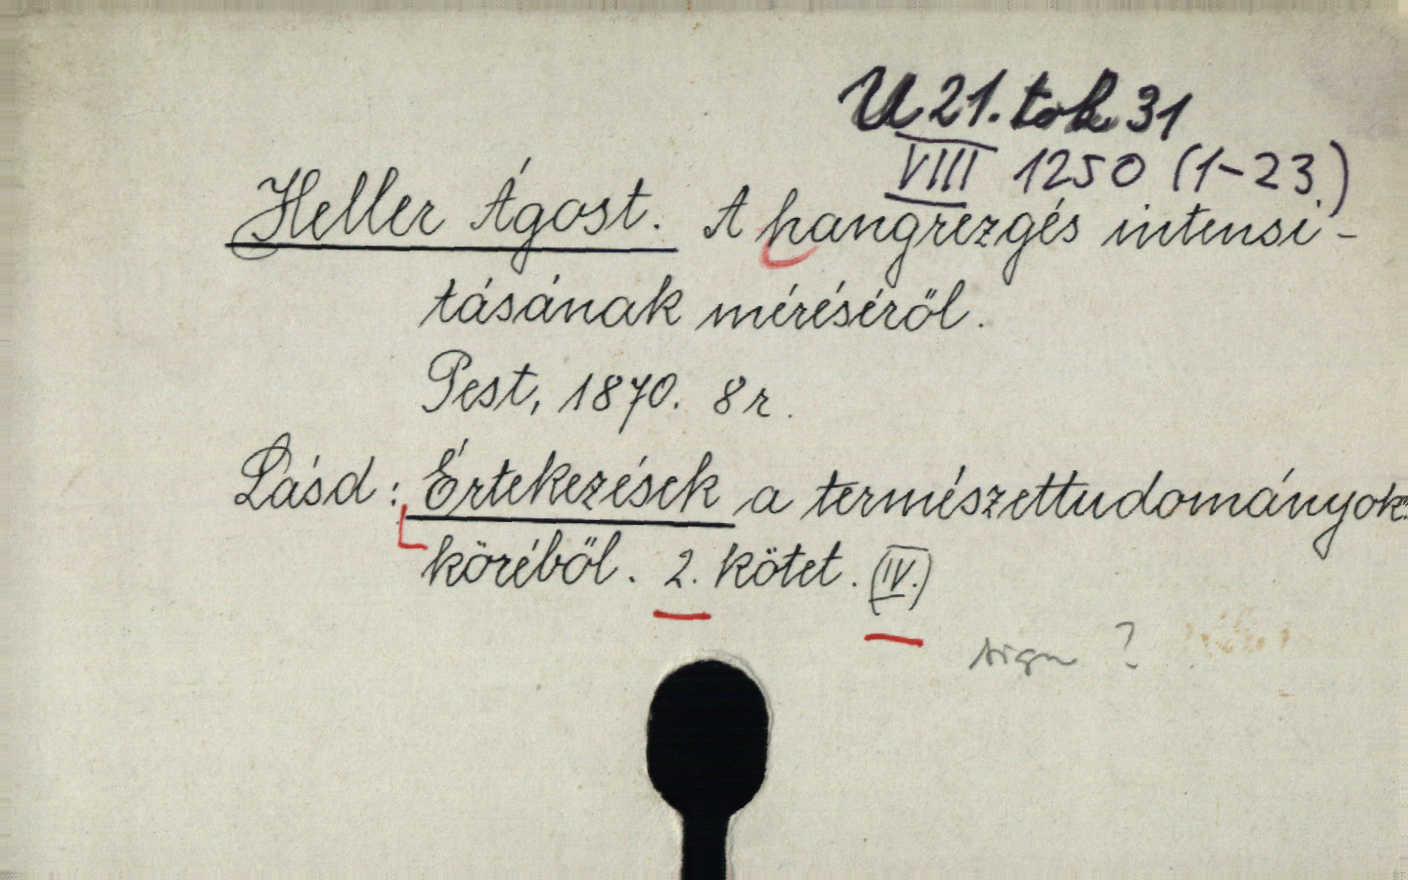 U 21. tok 31
VIII 1250 (1-23.)
Heller Ágost. A hangrezgés intensi-
tásának méréséről.
Pest, 1870. 8 r.
Lásd: Értekezések a természettudományok
köréből. 2. kötet. (IV.)
sign ?